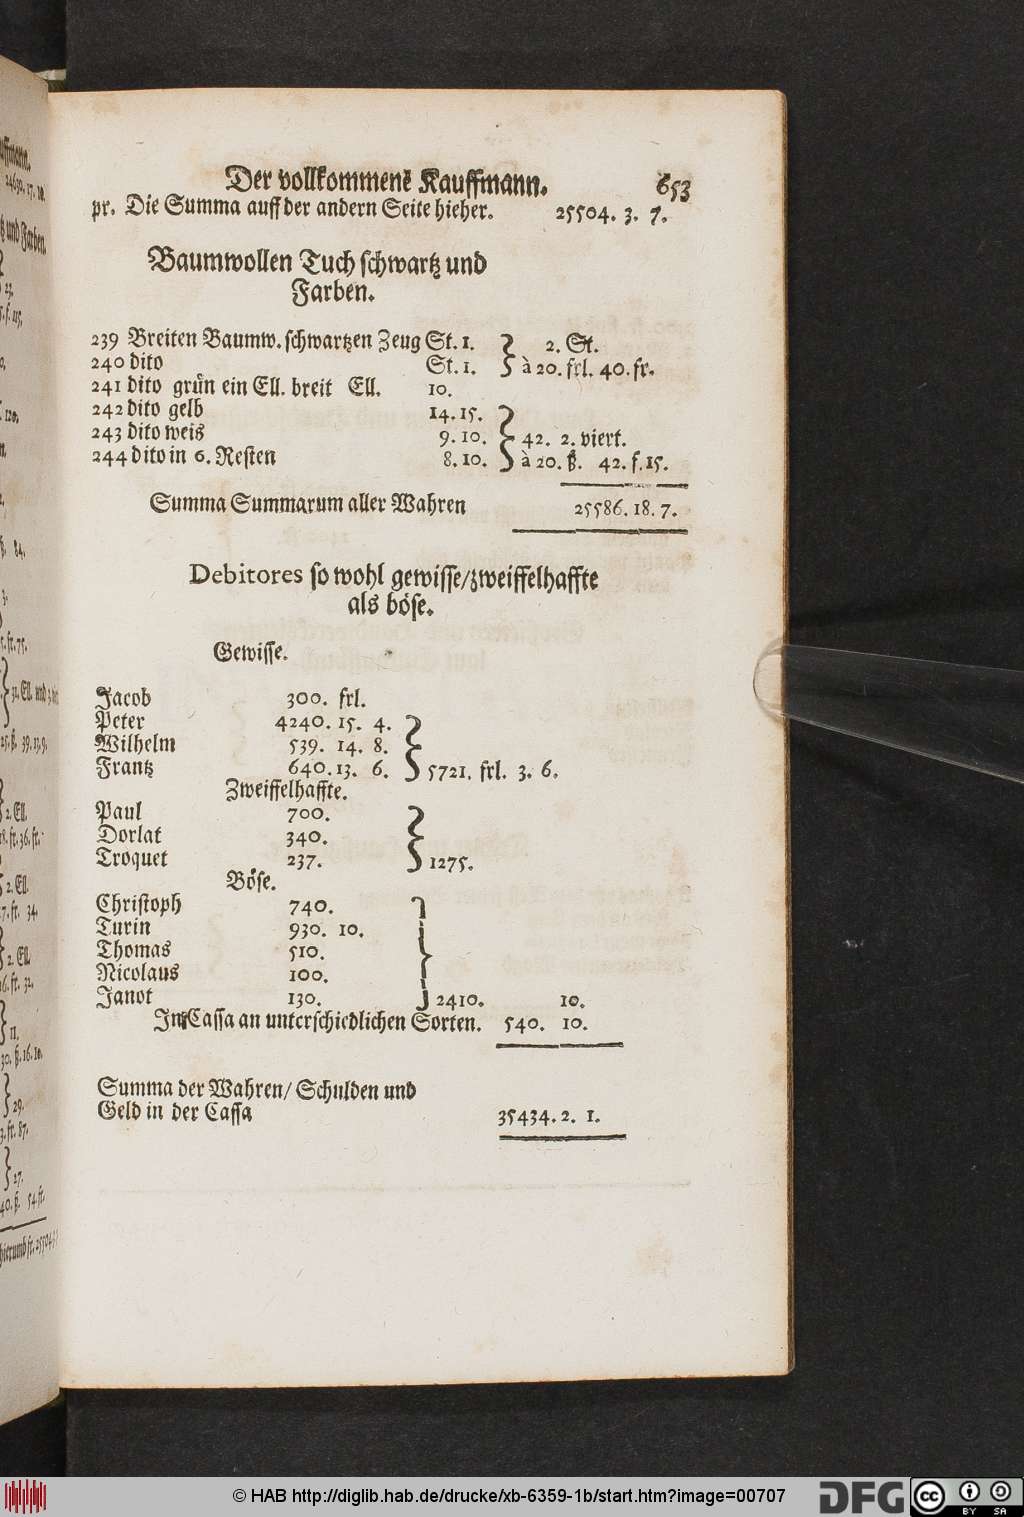 Der vollkommene Kauffmann. 653
pr. Die Summa auff der andern Seite hieher. 25504. 3. 7.
Baumwollen Tuch schwartz und
Farben.
239 Breiten Baumw. schwartzen Zeug St. 1. } 2. St.
240 dito St. 1. } à 20. frl. 40. fr.
241 dito grün ein Ell. breit Ell. 10.
242 dito gelb 14. 15. }
243 dito weis 9. 10. } 42. 2. viert.
244 dito in 6. Resten 8. 10. } à 20. ß. 42. f. 15.
Summa Summarum aller Wahren 25586. 18. 7.
Debitores so wohl gewisse/zweiffelhaffte
als böse.
Gewisse.
Jacob 300. frl.
Peter 4240. 15. 4.
Wilhelm 539. 14. 8.
Frantz 640. 13. 6. } 5721. frl. 3. 6.
Zweiffelhaffte.
Paul 700.
Dorlat 340.
Troquet 237. } 1275.
Böse.
Christoph 740.
Turin 930. 10.
Thomas 510.
Nicolaus 100.
Janot 130. } 2410. 10.
In Cassa an unterschiedlichen Sorten. 540. 10.
Summa der Wahren/ Schulden und
Geld in der Cassa 35434. 2. 1.
© HAB http://diglib.hab.de/drucke/xb-6359-1b/start.htm?image=00707
DFG cc BY SA